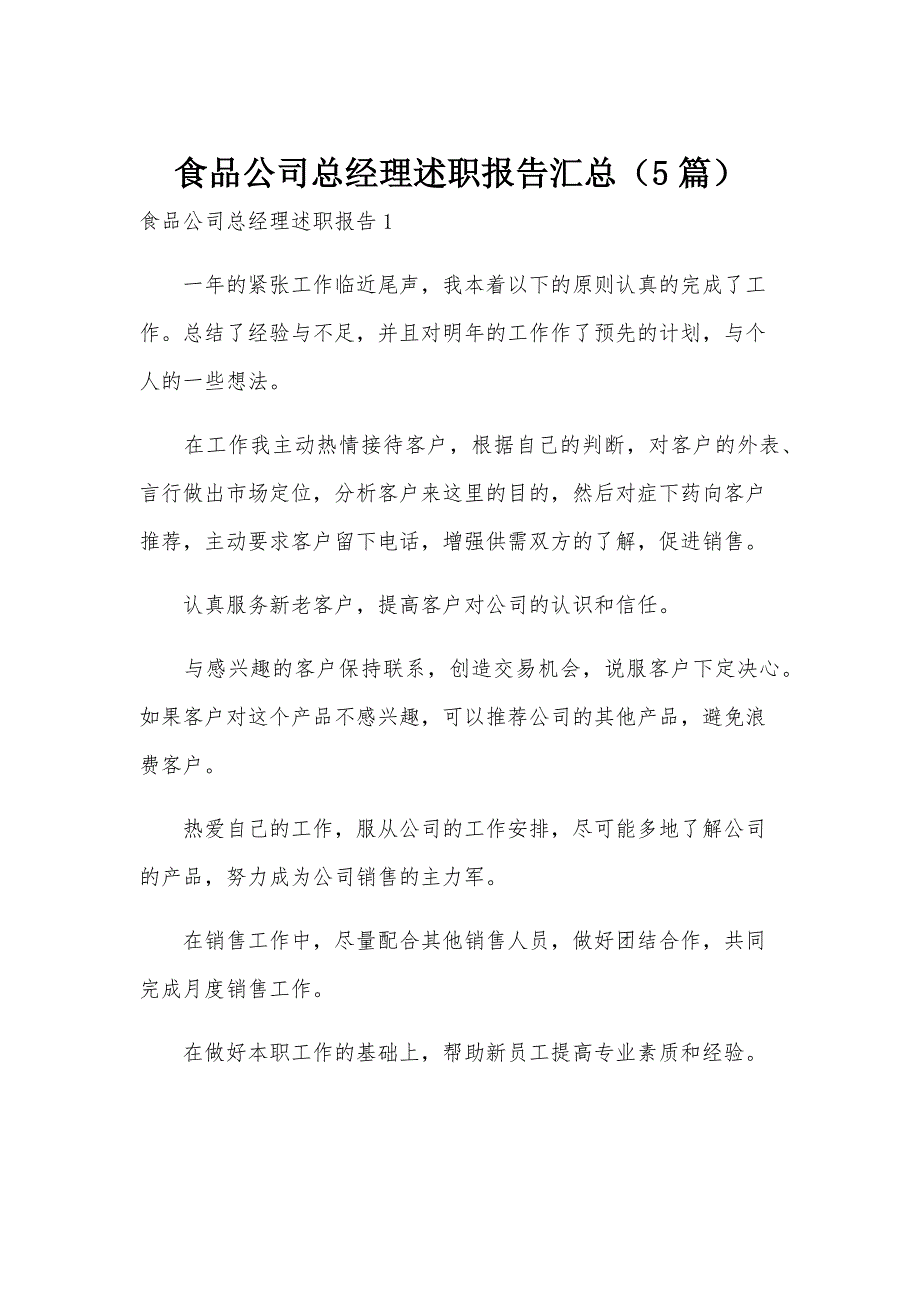 食品公司总经理述职报告汇总（5 篇）
食品公司总经理述职报告 1
一年的紧张工作临近尾声，我本着以下的原则认真的完成了工
作。总结了经验与不足，并且对明年的工作作了预先的计划，与个
人的一些想法。
在工作我主动热情接待客户，根据自己的判断，对客户的外表、
言行做出市场定位，分析客户来这里的目的，然后对症下药向客户
推荐，主动要求客户留下电话，增强供需双方的了解，促进销售。
认真服务新老客户，提高客户对公司的认识和信任。
与感兴趣的客户保持联系，创造交易机会，说服客户下定决心。
如果客户对这个产品不感兴趣，可以推荐公司的其他产品，避免浪
费客户。
热爱自己的工作，服从公司的工作安排，尽可能多地了解公司
的产品，努力成为公司销售的主力军。
在销售工作中，尽量配合其他销售人员，做好团结合作，共同
完成月度销售工作。
在做好本职工作的基础上，帮助新员工提高专业素质和经验。